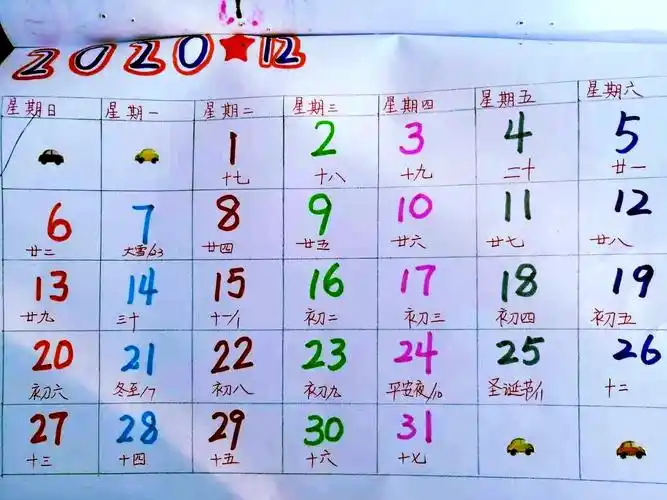 2020★12
星期日 星期一 星期二 星期三 星期四 星期五 星期六
1 2 3 4 5
十七 十八 十九 二十 廿一
6 7 8 9 10 11 12
廿二 大雪/63 廿四 廿五 廿六 廿七 廿八
13 14 15 16 17 18 19
廿九 三十 十一/1 初二 初三 初四 初五
20 21 22 23 24 25 26
初六 冬至/7 初八 初九 平安夜/10 圣诞节/11 十二
27 28 29 30 31
十三 十四 十五 十六 十七